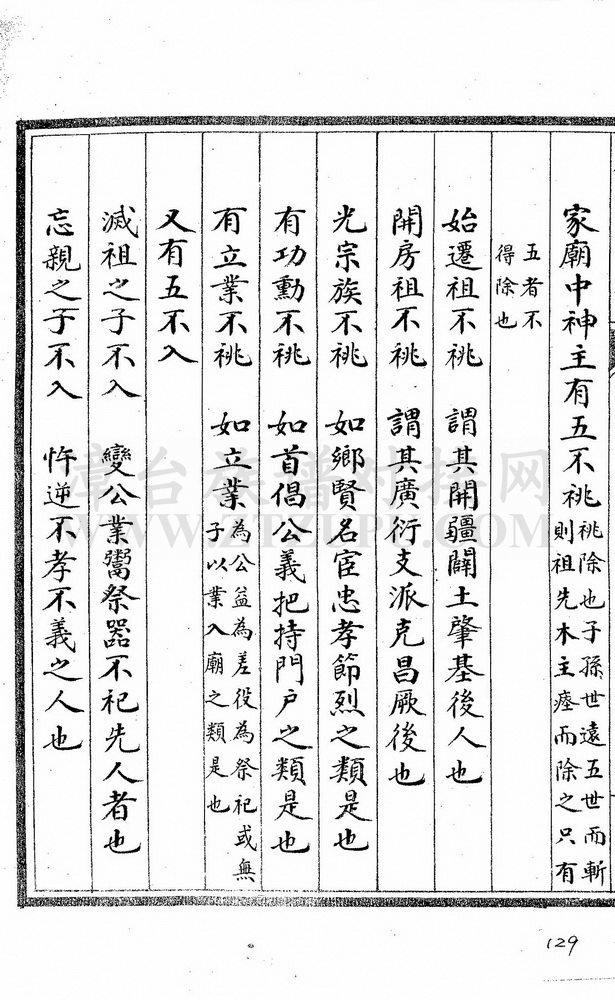 家廟中神主有五不祧祧除也子孫世遠五世而斬則祖先木主瘞而除之只有
五者不得除也
始遷祖不祧　謂其開疆闢土肇基後人也
開房祖不祧　謂其廣衍支派克昌厥後也
光宗族不祧　如鄉賢名宦忠孝節烈之類是也
有功勳不祧　如首倡公義把持門戶之類是也
有立業不祧　如立業為公益為差役為祭祀或無子以業入廟之類是也
又有五不入
滅祖之子不入　變公業鬻祭器不祀先人者也
忘親之子不入　忤逆不孝不義之人也
漳台族譜对接网
WWW.ZTZLPP.COM
129